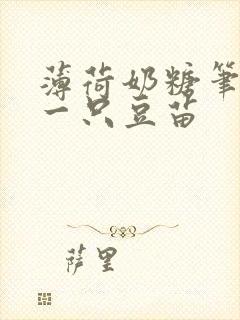 薄荷奶糖笔
一只豆苗
萨里